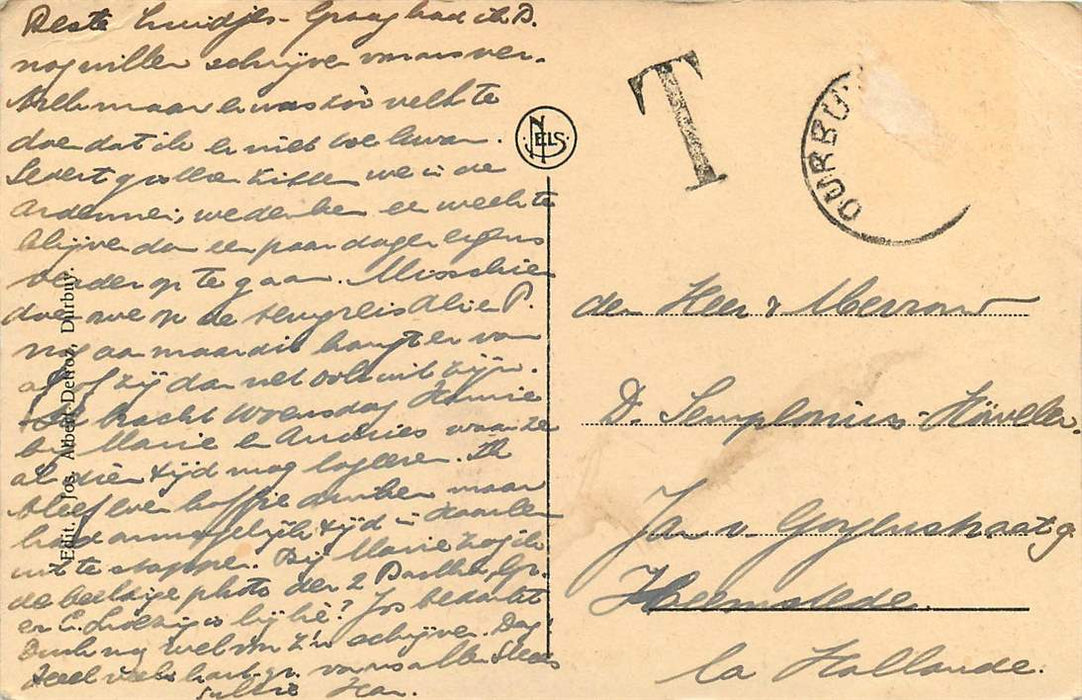 Beste Luidjes - Graag had ik D.
nog willen schrijven voor ons ver-
trek maar er was zóó veel te
doen dat ik er niet toe kwam.
Sedert gisteren zitten we in de
Ardennen; we denken er een week te
blijven dan een paar dagen ergens
verder op te gaan. Misschien
doen we op de terugreis P.
nog aan maar dit hangt er van
af of zij dan net ook uit zijn.
bracht Woensdag Hannie
bij Marie en Andries waar ze
al dien tijd mag logeeren. Ik
bleef even koffie drinken maar
had onmogelijk tijd in Haarlem
uit te stappen. Bij Marie zag ik
de beeldige photo der 2
en is hij hè? Jos bedankt
Dick nog wel voor z'n schrijven. Dag!
Heel veel hart. gr. van ons allen Steeds
Jullie Han.
Edit. Jos. Albert-Detroz, Durbuy.
NELS
T
DURBUY
den Heer & Mevrouw
D. Semplonius-Hövelen.
Jan v. Goyenstraat 9.
Heemstede.
la Hollande.